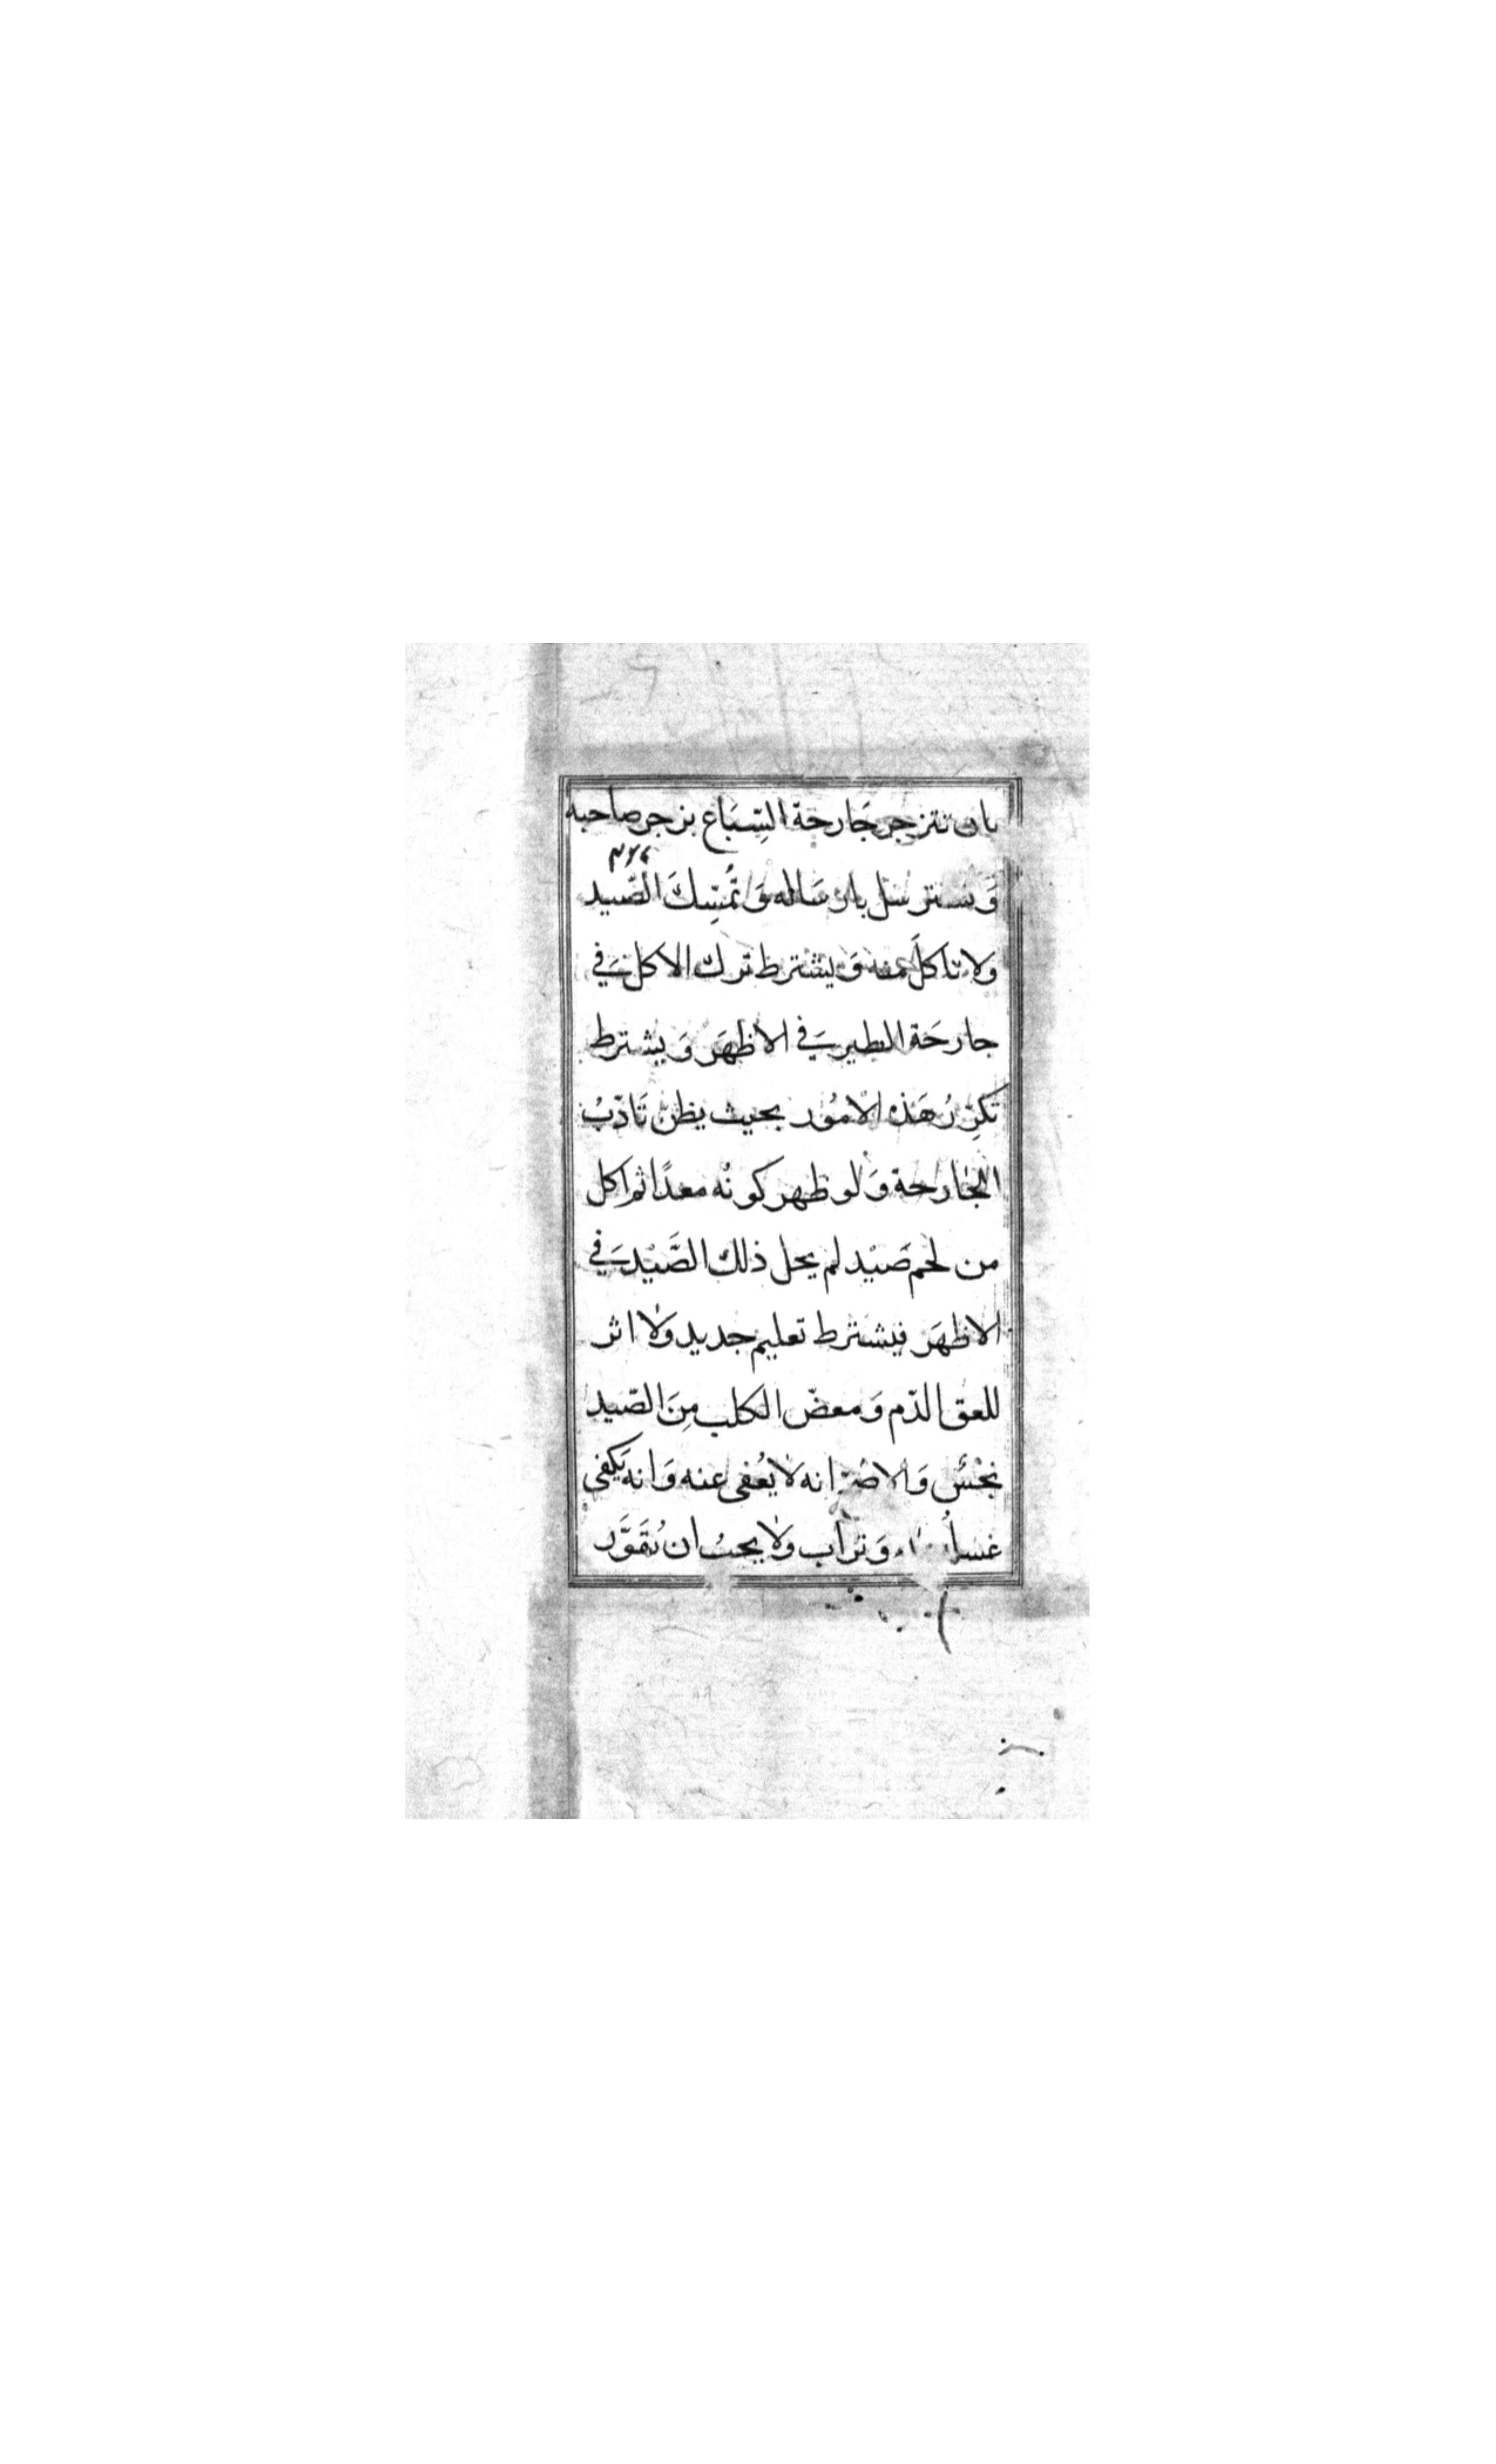 بان تنزجر جَارحة السِّبَاع بزجر صاحبه
وَ يسترسل بارسَاله وَ تُمْسِكَ الصّيد
ولا تاكلَ منه وَ يشترط ترك الاكل في
جارحَة الطير في الاظهَر وَ يشترط
تكرّرُ هَذه الامُور بحيث يظن تَادّبُ
الجارحة وَ لو ظهر كونُه معدًا ثم اكل
من لحم صَيْد لم يحل ذلك الصَّيْد في
الاظهَر فيشترط تعليم جديد ولا اثر
للعق الدّم وَ معضّ الكلب مِنَ الصّيد
نجسٌ وَ الاصَحّ انه لا يُعْفى عنه وَ انه يَكفي
وَ تراب ولا يجبُ ان يُقَوَّر